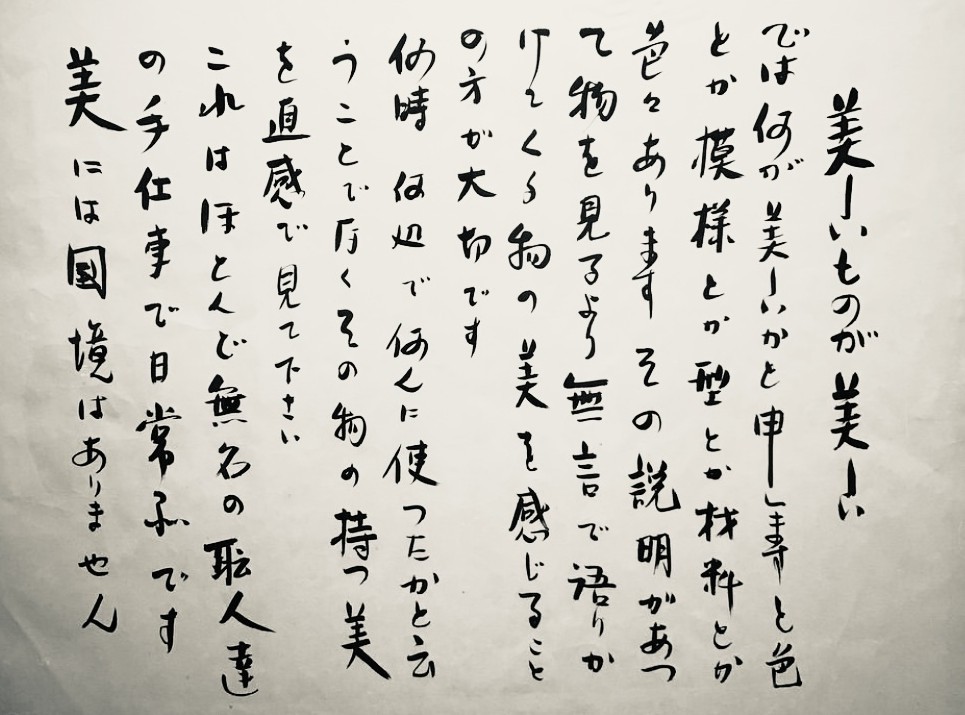 美しいものが美しい
では何が美しいかと申しますと色
とか模様とか型とか材料とか
色々あります その説明があつ
て物を見るより無言で語りか
けてくる物の美を感じること
の方が大切です
何時 何処で 何人に使つたかと云
うことでなくその物の持つ美
を直感で見て下さい
これはほとんど無名の職人達
の手仕事で日常品です
美には国境はありません